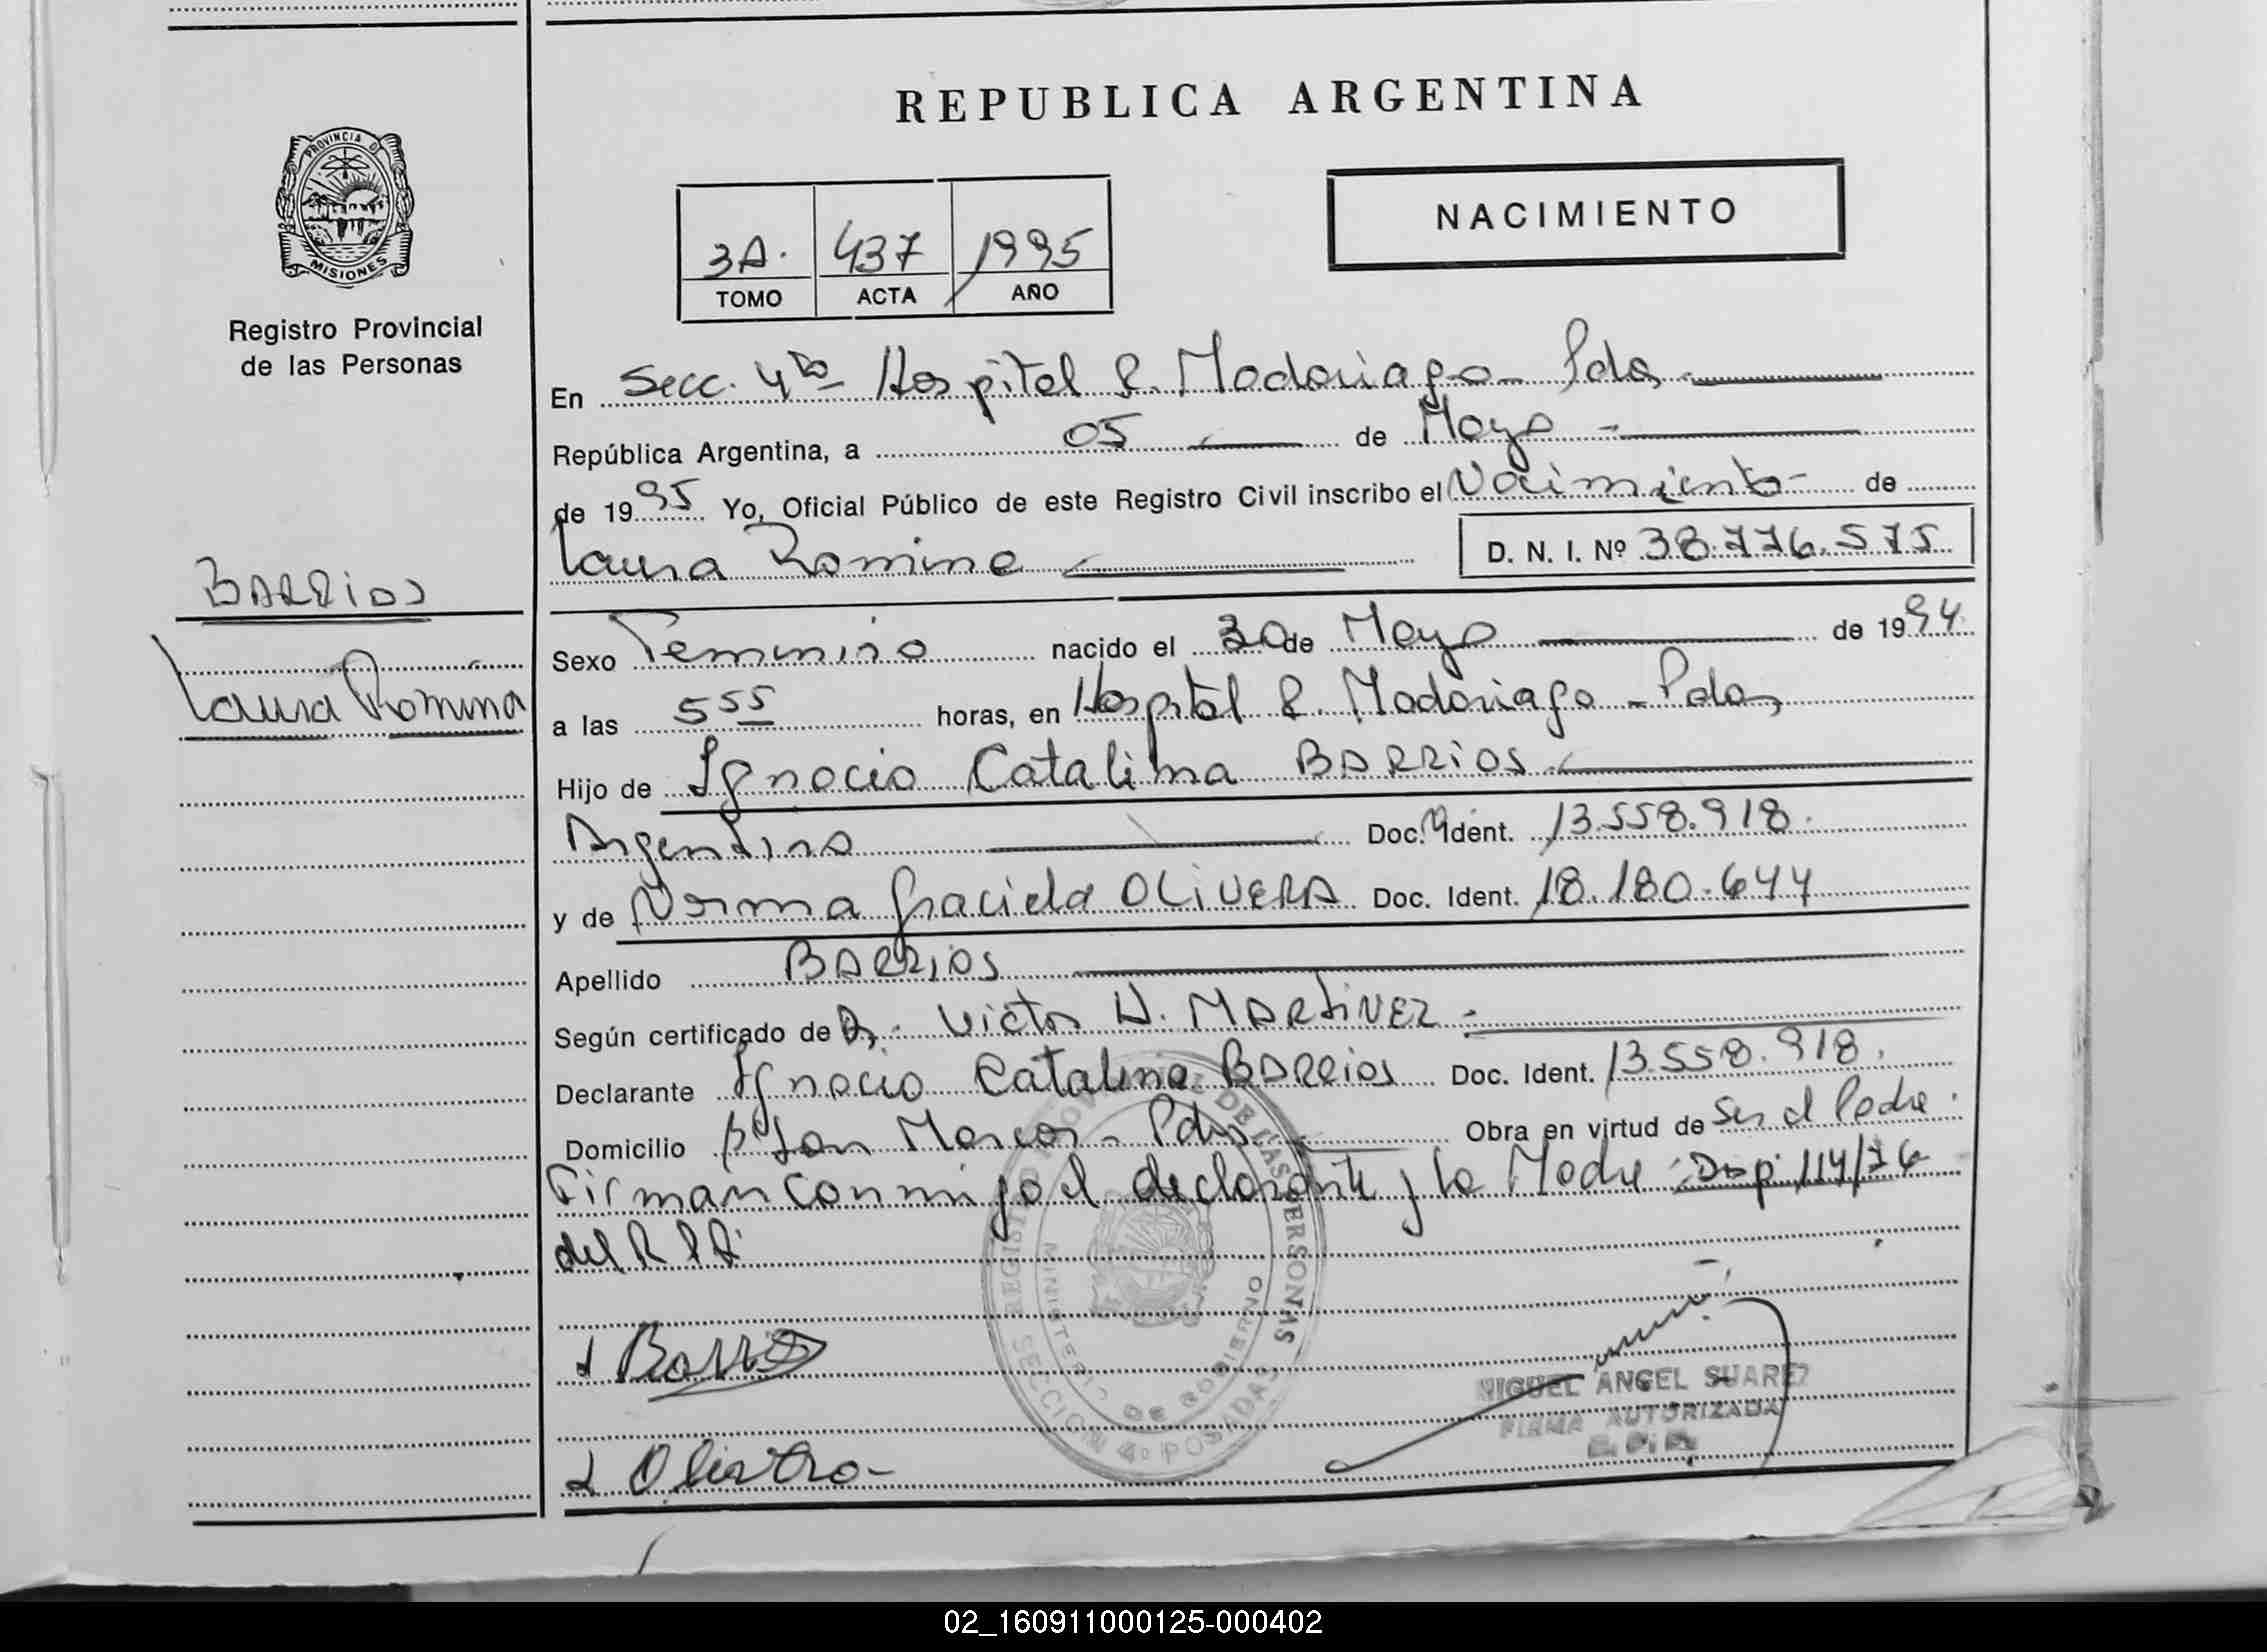 REPUBLICA ARGENTINA
PROVINCIA D
MISIONES
Registro Provincial
de las Personas
NACIMIENTO
3A. 437 1995
TOMO ACTA AÑO
En Secc. 4ta Hospital R. Madariaga - Pdas
República Argentina, a 05 de Mayo
de 1995 Yo, Oficial Público de este Registro Civil inscribo el Nacimiento de
Laura Romina D. N. I. Nº 38.776.575
BARRIOS
Laura Romina
Sexo Femenino nacido el 30 de Mayo de 1994
a las 5 55 horas, en Hospital R. Madariaga - Pdas
Hijo de Ignacio Catalina BARRIOS
Argentino Doc. Ident. 13.558.918.
y de Norma Graciela OLIVERA Doc. Ident. 18.180.644
Apellido BARRIOS
Según certificado de Dr. Victor H. MARTINEZ
Declarante Ignacio Catalino BARRIOS Doc. Ident. 13.558.918.
Domicilio Bº San Marcos - Pdas Obra en virtud de Ser el Padre.
Firman conmigo el declarante y la Madre Disp. 114/76
del R P P.
REGISTRO PROVINCIAL DE LAS PERSONAS
MINISTERIO DE GOBIERNO
SECCION 4º POSADAS
Barrios
MIGUEL ANGEL SUAREZ
FIRMA AUTORIZADA
R. P. P.
02_160911000125-000402